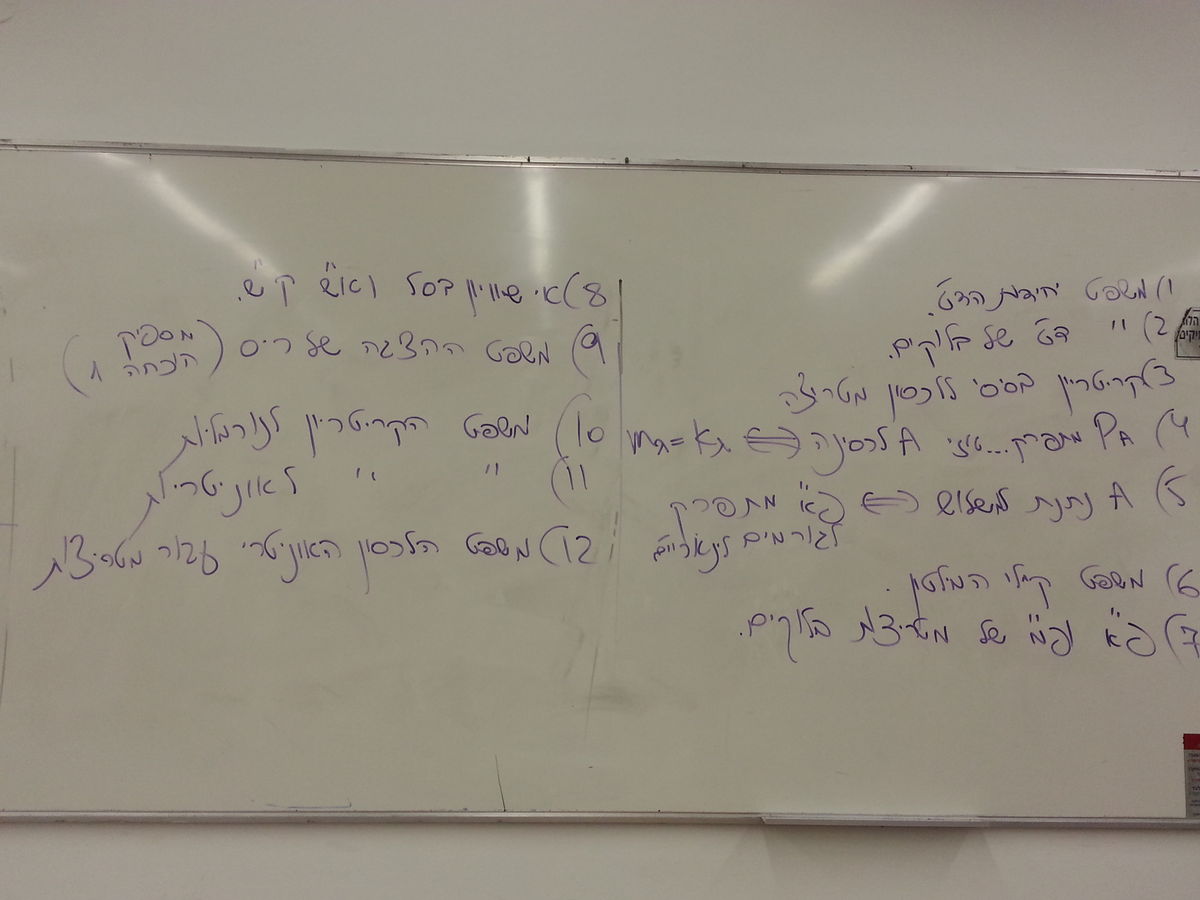 1) משפט יחידות הדט'.
2) " דט' של בלוקים.
3) קריטריון בסיסי ללכסון מטריצה
4) P_A מתפרק... אזי A לכסינה ⟺ m_λ = k_λ
5) A ניתנת לשילוש ⟺ פ"א מתפרק
לגורמים לינאריים
6) משפט קיילי המילטון.
7) פ"א ופ"מ של מטריצת בלוקים.
8) אי שוויון בסל ואי"ש ק"ש.
9) משפט ההצגה של ריס (מספיק
הוכחה 1)
10) משפט הקריטריון לנורמליות
11) " " לאוניטריות
12) משפט הלכסון האוניטרי עבור מטריצות